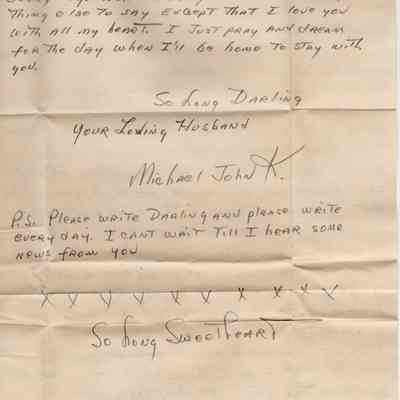 Thing else to say except that I love you
with all my heart. I Just pray and dream
for the day when I'll be home to stay with
you.
So Long Darling
Your Loving Husband
Michael John K.
P.S. Please write Darling and please write
every day. I cant wait till I hear some
news from you
X X X X X X X X X X
So Long Sweetheart